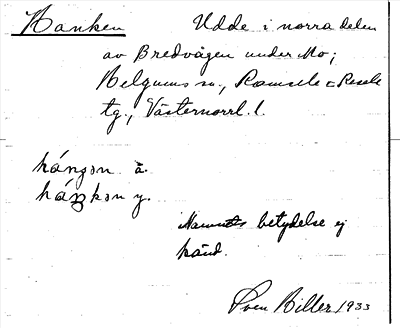 Hanken Udde i norra delen
av Bredvågen under Mo;
Helgums sn., Ramsele o Resele
tg., Västernorrl. l.
háŋən ä.
háŋkən y.
Namnets betydelse ej
känd.
Sven Hiller 1933